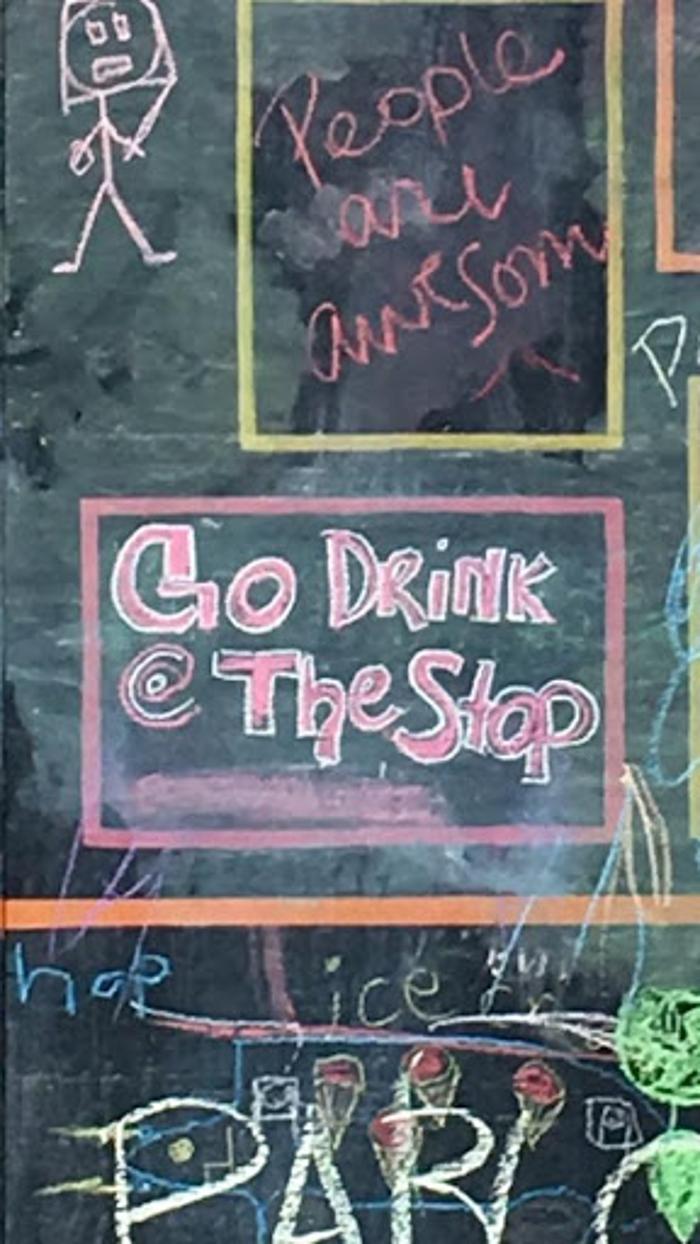 People
are
awesom
Go DRiNK
@ The Stop
hop
ice
PARK